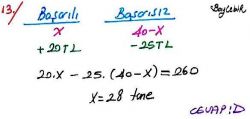 13./ Başarılı Başarısız BayÇebir
x 40-x
+20TL -25TL
20.x - 25.(40-x) = 260
x = 28 tane
CEVAP: D